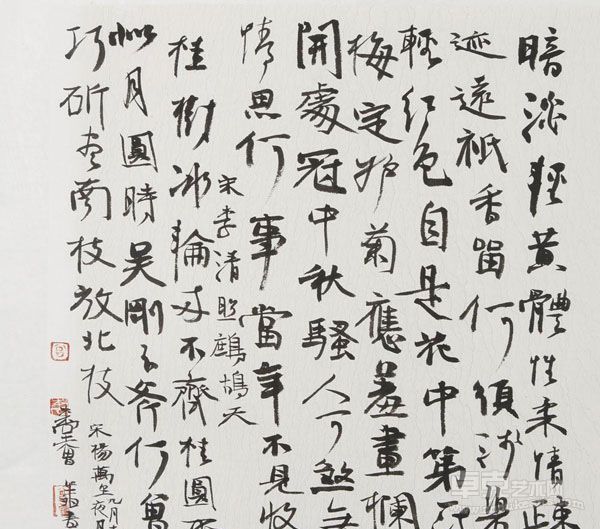 暗淡輕黃體性柔情疎
迹遠祇香留何須
輕紅色自是花中第
梅定妒菊應羞畫欄
開處冠中秋騷人可煞無
情思何事當年不見收
宋李清照鷓鴣天
桂樹冰輪兩不齊桂圓不
似月圓時吳剛玉斧何曾
巧斫盡南枝放北枝
宋楊萬里九月十
夜月